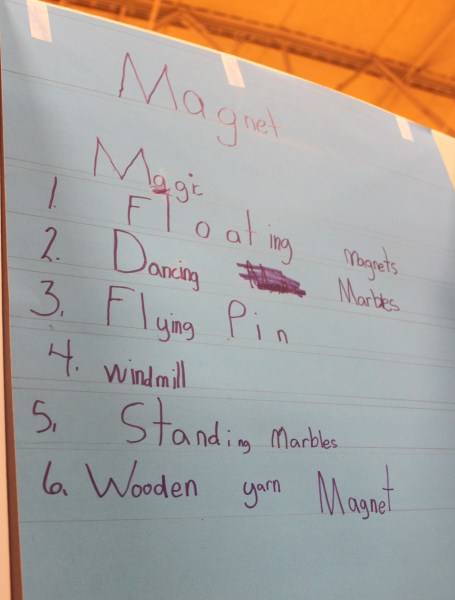 Magnet
Magic
1. Floating Magnets
2. Dancing Marbles
3. Flying Pin
4. windmill
5. Standing Marbles
6. Wooden yarn Magnet